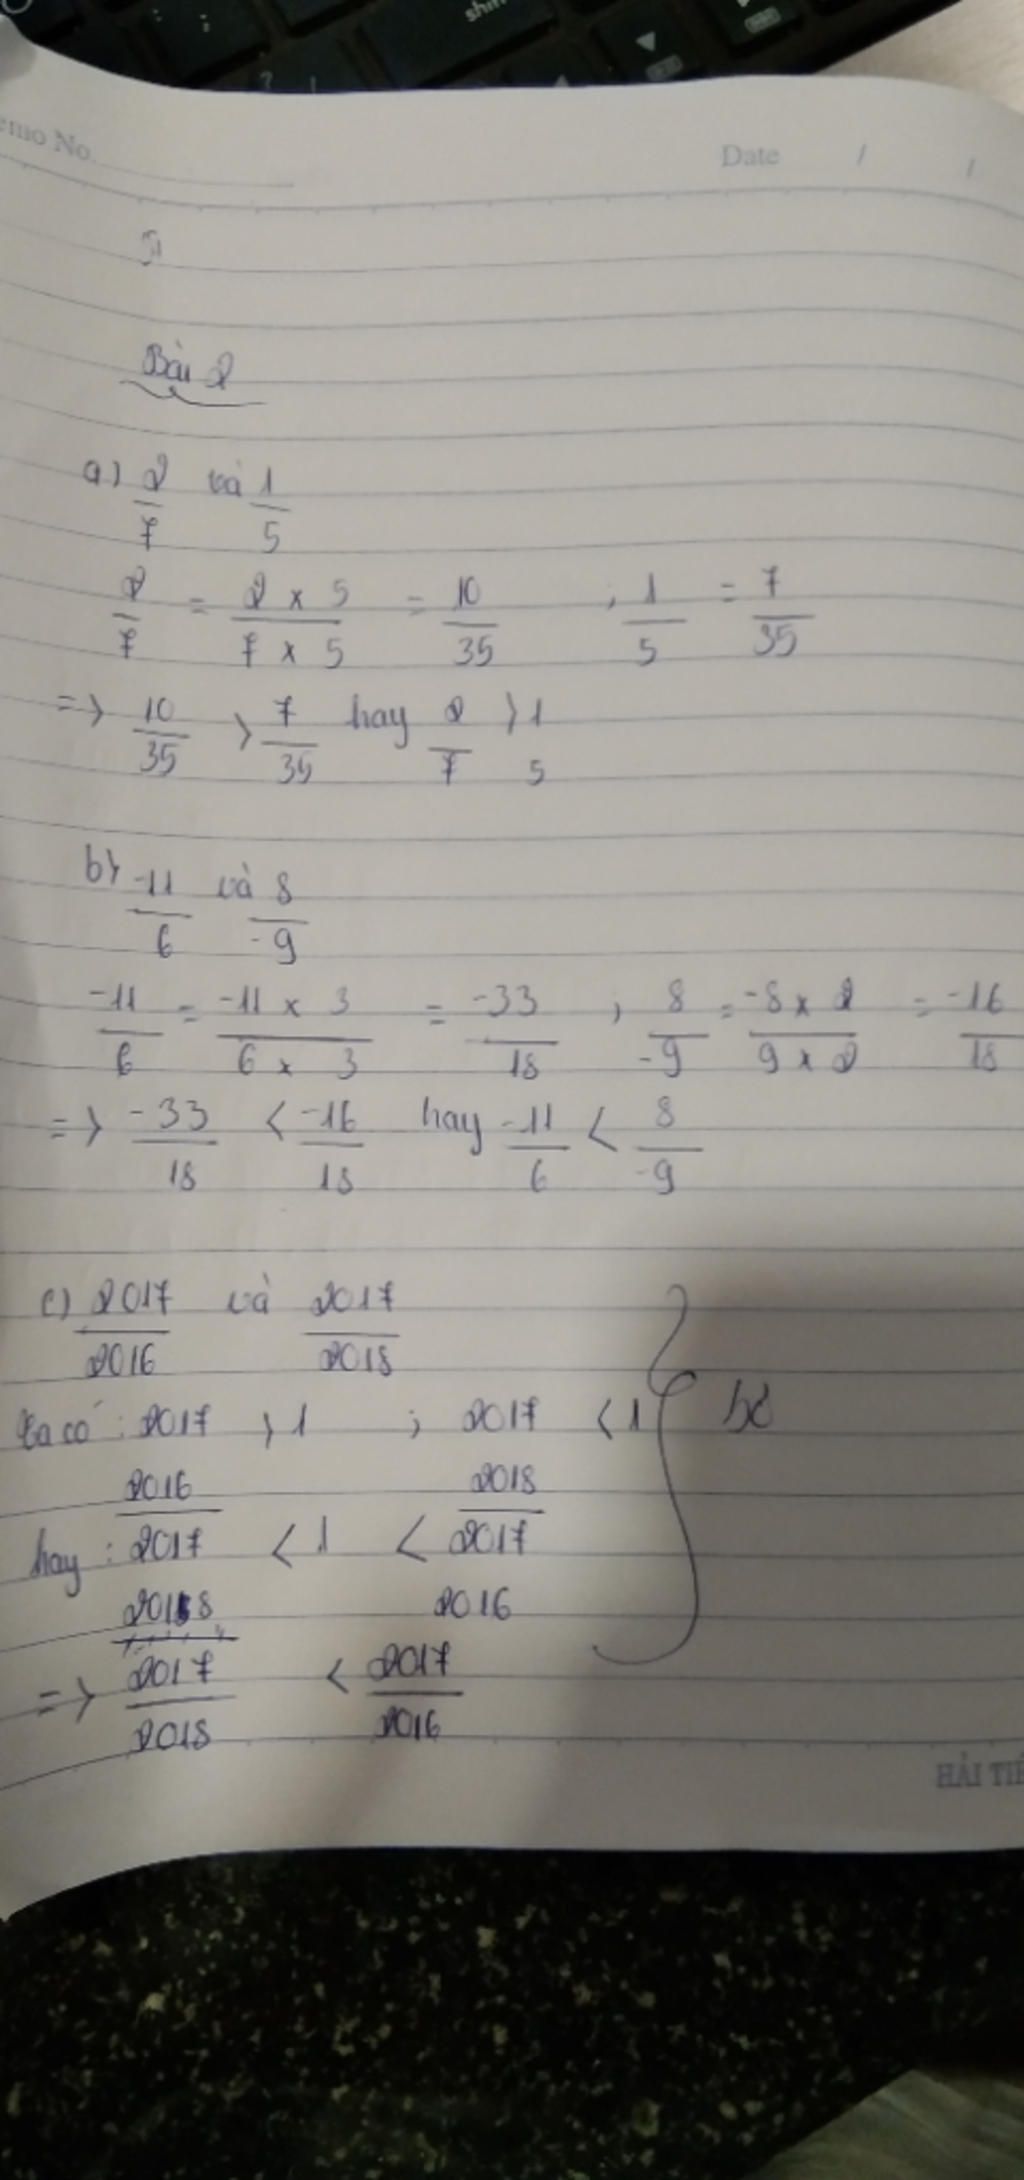 shift
emo No.
Date / /
Bài 2
a) 2/7 và 1/5
2/7 = 2 x 5 / 7 x 5 = 10/35 ; 1/5 = 7/35
=> 10/35 > 7/35 hay 2/7 > 1/5
b) -11/6 và 8/-9
-11/6 = -11 x 3 / 6 x 3 = -33/18 ; 8/-9 = -8 x 2 / 9 x 2 = -16/18
=> -33/18 < -16/18 hay -11/6 < 8/-9
c) 2017/2016 và 2017/2018
Ta có : 2017/2016 > 1 ; 2017/2018 < 1
hay : 2017/2018 < 1 < 2017/2016
=> 2017/2018 < 2017/2016
HẢI TIẾ